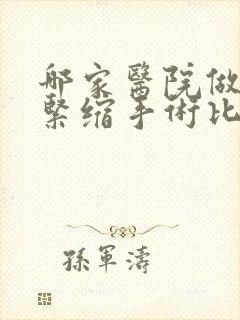 邮家醫院做
緊缩手術比
孫軍濤